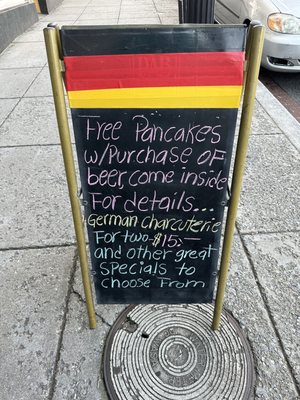 Free Pancakes
w/Purchase of
beer, come inside
For details...
German charcuterie
For two-$15.—
and other great
Specials to
choose From